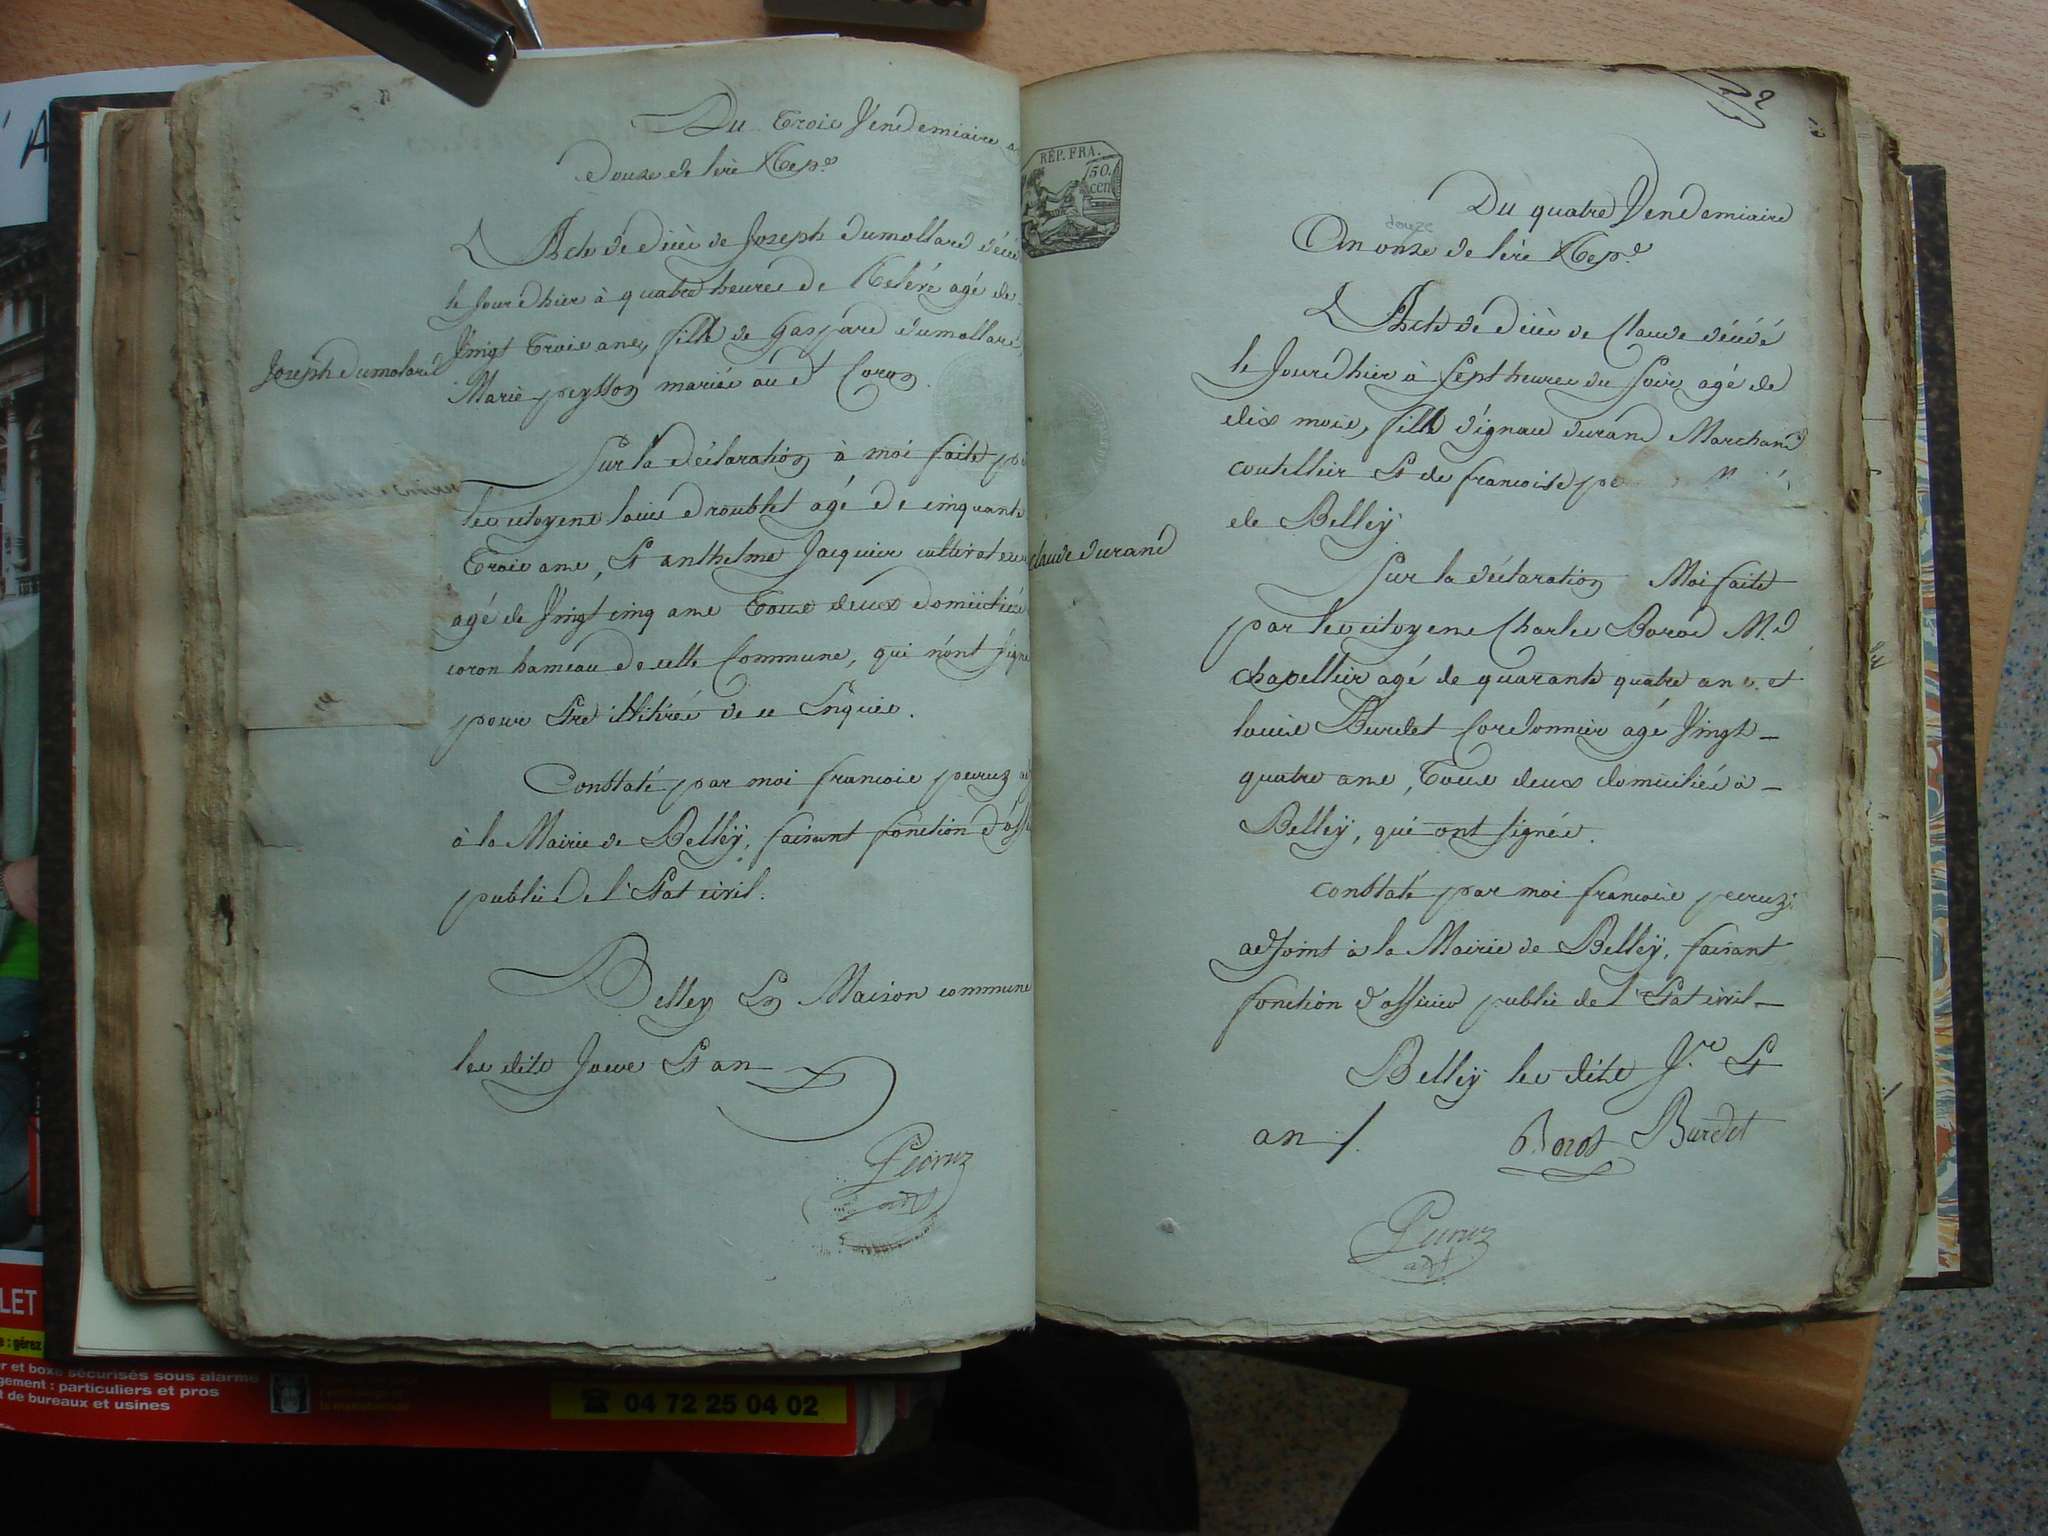 Du trois Vendemiaire
Douze de l'ère Rep.e
Acte de décès de Joseph Dumollard décédé
le Jourdhier à quatre heures de Relevé agé de
Vingt trois ans, fills de Gaspard Dumollard,
Marie peysson mariée au dt Coron.
Joseph Dumolard
Sur la déclaration à moi faite
les citoyens louis Droublet agé de cinquante
trois ans, Et anthelme Jacquier cultivateur
agé de Vingt cinq ans tous deux domiciliés
coron hameau de cette Commune, qui n'ont signé
pour Etre illitirés de ce Enquis.
Constaté par moi francois peruz
à la Mairie de Belley, faisant fonction
public De l'Etat civil.
Belley En Maison commune
les dits Jours Et an
Peiruz
adjt
2
RÉP. FRA.
50.
cen
Du quatre Vendemiaire
douze
An onze de l'ère Rep.e
Acte de décès de Claude décédé
le Jourdhier à Sept heures du Soir agé de
dix mois, fills d'ignace durand Marchand
coutellier Et de francoise
de Belley
claude durand
Sur la déclaration Moi faite
par les citoyens Charles Borod M.d
chapellier agé de quarante quatre ans et
louis Burdet Cordonnier agé Vingt
quatre ans, tous deux domiciliés à
Belley, qui ont signés.
constaté par moi francois peiruz
adjoint à la Mairie de Belley, faisant
fonction d'officier public de l'Etat civil
Belley les dits J.rs Et
an /.
Borot Burdet
Peiruz
adjt
LET
04 72 25 04 02
r et boxe sécurisés sous alarme
gement : particuliers et pros
t de bureaux et usines